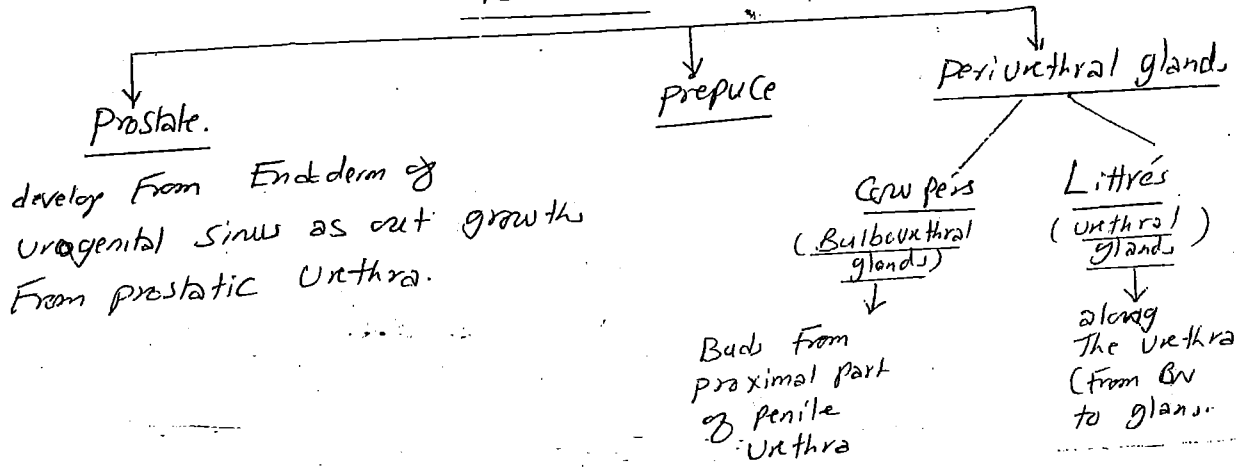 Prostate.
develop From Endoderm of
urogenital sinus as out growths
From prostatic Urethra.
prepuce
periurethral glands
Cowper's
(Bulbourethral
glands)
Buds From
proximal part
of penile
Urethra
Littre's
(urethral
glands)
along
The Urethra
(From BN
to glans.